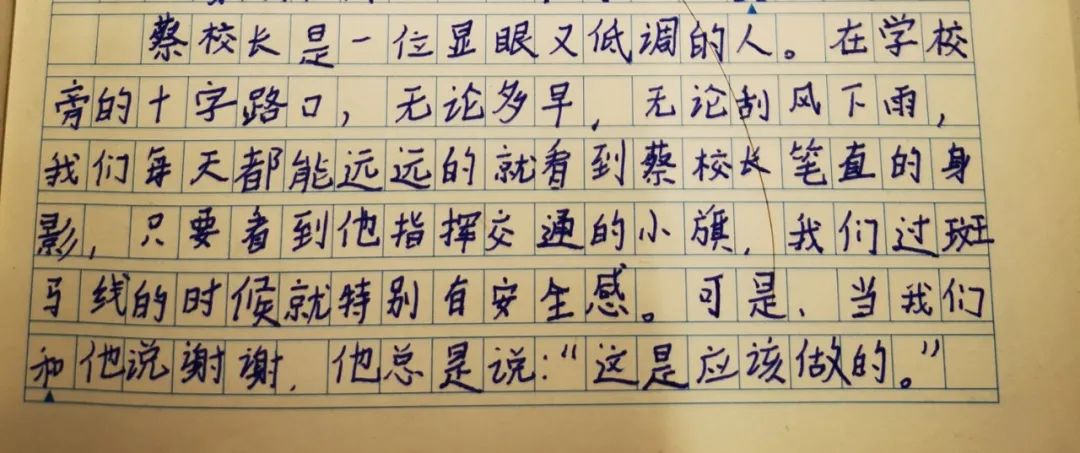 蔡校长是一位显眼又低调的人。在学校
旁的十字路口，无论多早，无论刮风下雨，
我们每天都能远远的就看到蔡校长笔直的身
影，只要看到他指挥交通的小旗，我们过斑
马线的时候就特别有安全感。可是，当我们
和他说谢谢，他总是说：“这是应该做的。”